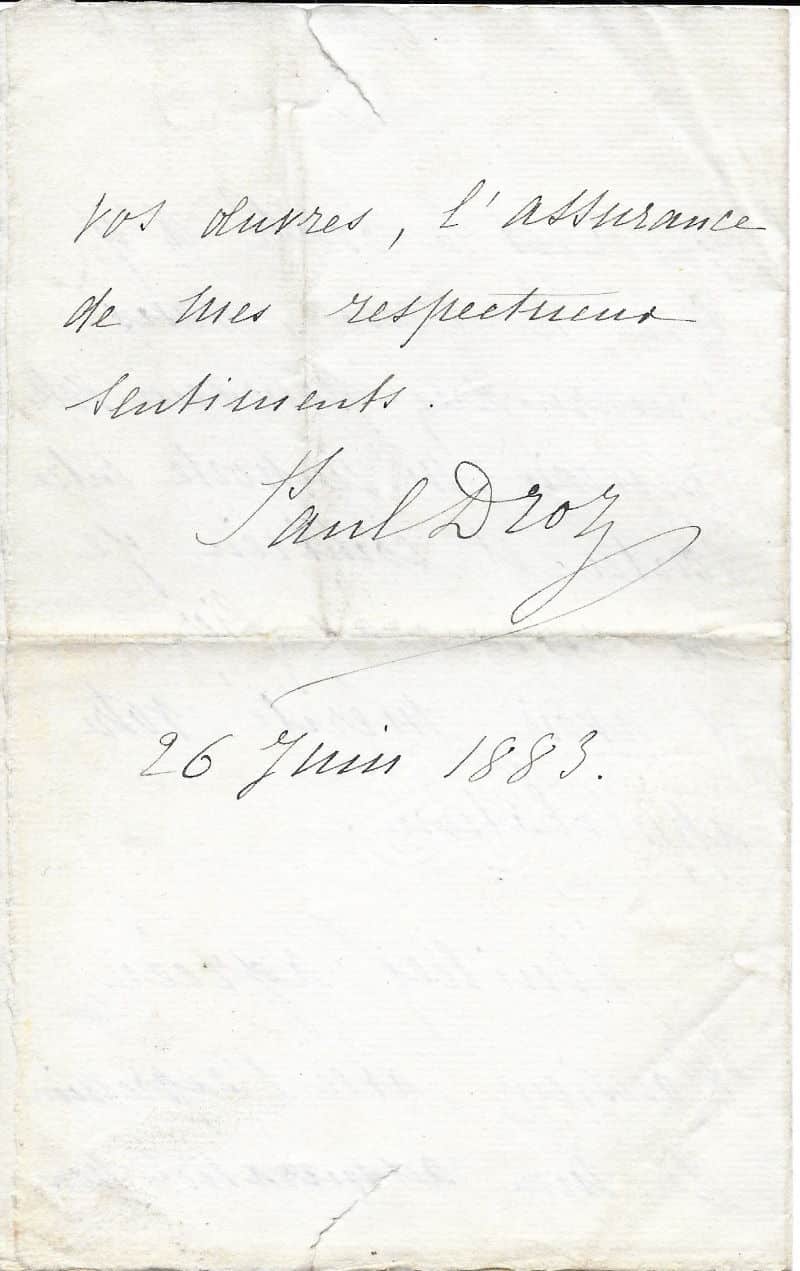 vos œuvres, l'assurance
de mes respectueux
sentiments.
Paul Droz
26 Juin 1883.